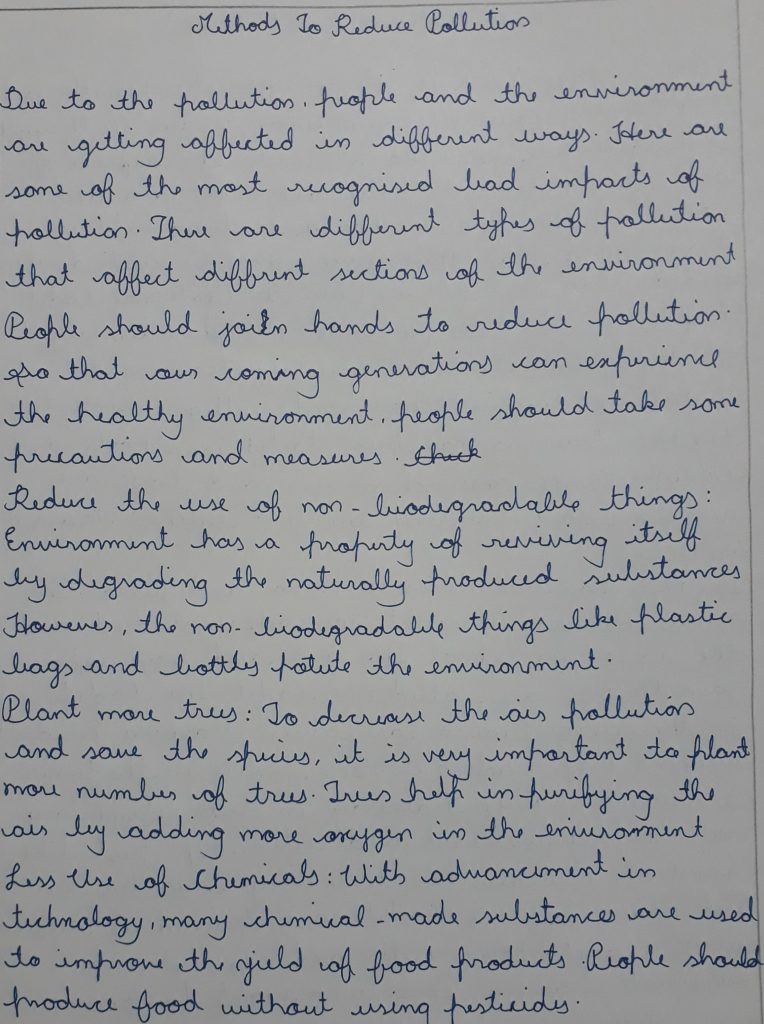 Methods To Reduce Pollution
Due to the pollution, people and the environment
are getting affected in different ways. Here are
some of the most recognised bad impacts of
pollution. There are different types of pollution
that affect diffrent sections of the environment
People should join hands to reduce pollution.
so that our coming generations can experience
the healthy environment, people should take some
precautions and measures. Check
Reduce the use of non-biodegradable things:
Environment has a property of reviving itself
by degrading the naturally produced substances
However, the non-biodegradable things like plastic
bags and bottles polute the environment.
Plant more trees: To decrease the air pollution
and save the species, it is very important to plant
more number of trees. Trees help in purifying the
air by adding more oxygen in the environment
Less Use of Chemicals: With advancement in
technology, many chemical-made substances are used
to improve the yield of food products. People should
produce food without using pesticides.